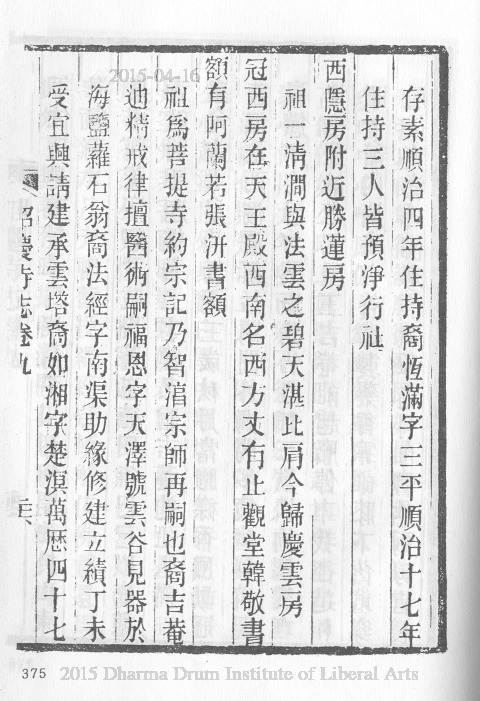 存素順治四年住持裔恆滿字三平順治十七年
住持三人皆預淨行社
西隱房附近勝蓮房
祖一清澗與法雲之碧天湛比肩今歸慶雲房
冠西房在天王殿西南名西方丈有止觀堂韓敬書
額有阿蘭若張汧書額
祖爲菩提寺約宗記乃智淯宗師再嗣也裔吉菴
迪精戒律擅醫術嗣福恩字天澤號雲谷見器於
海鹽蘿石翁裔法經字南渠助緣修建立績丁未
受宜興請建承雲塔裔如湘字楚漠萬厯四十七
昭慶寺志卷九
2015-04-16
375
2015 Dharma Drum Institute of Liberal Arts